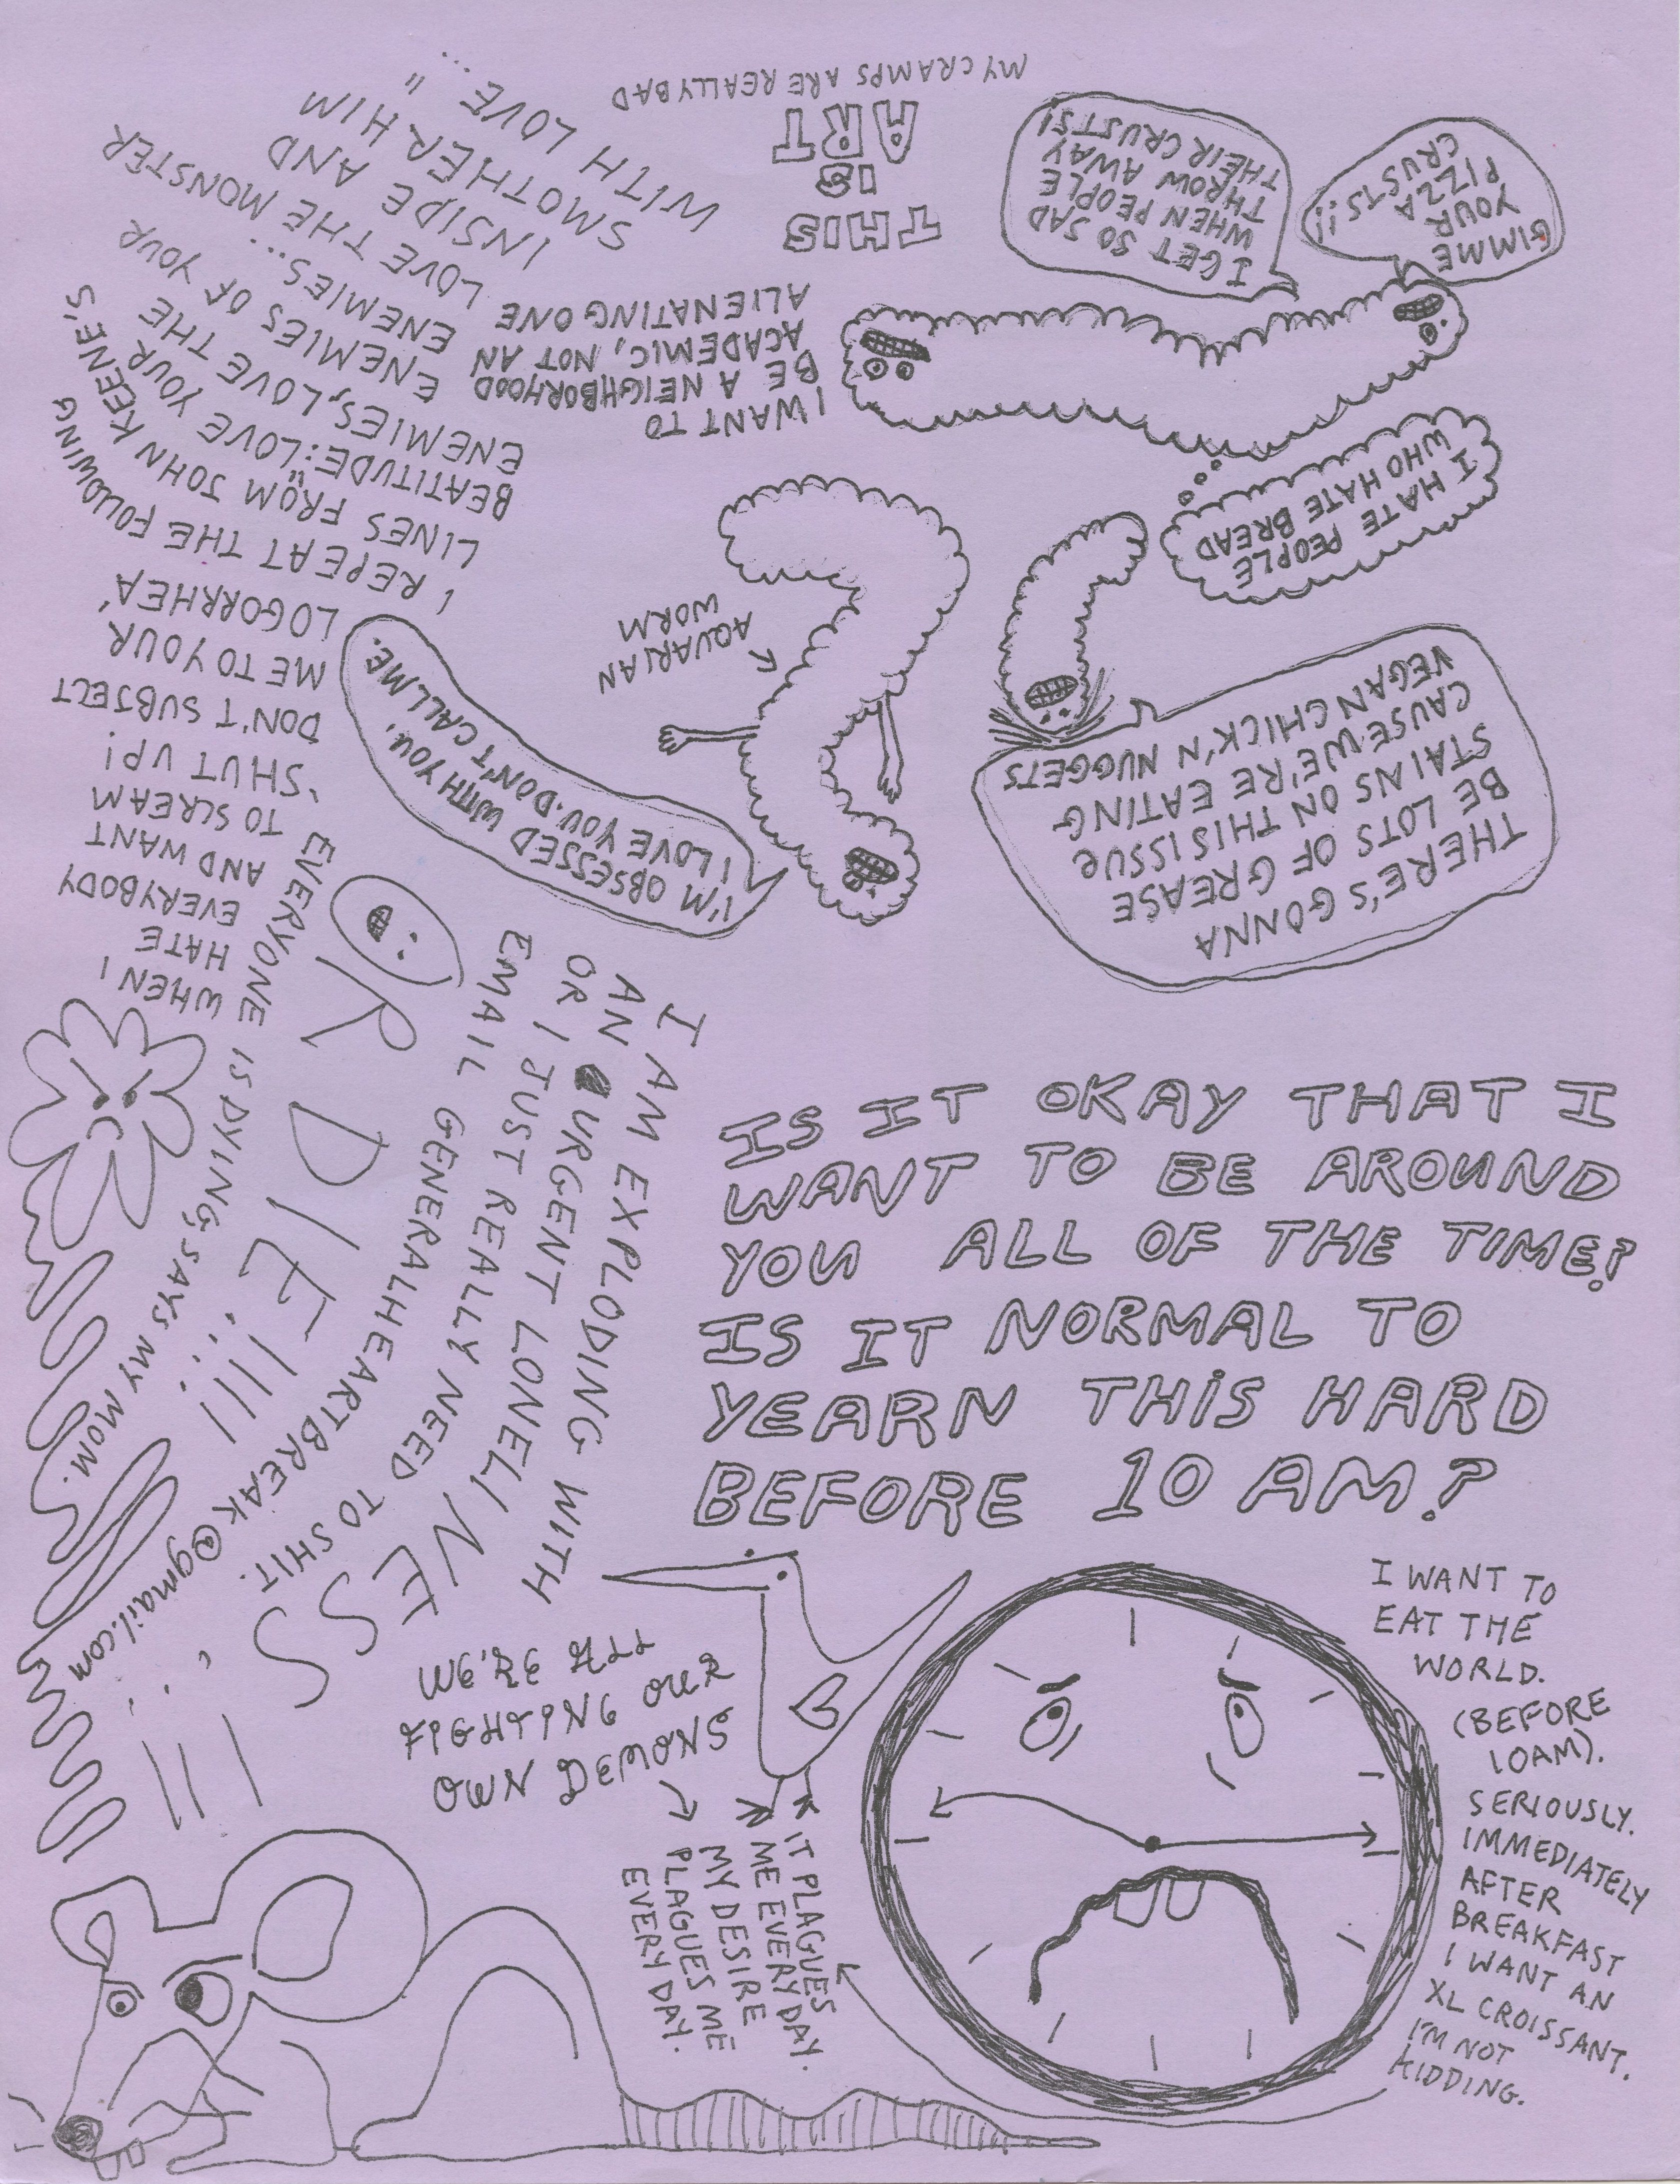 IS IT OKAY THAT I
WANT TO BE AROUND
YOU ALL OF THE TIME?
IS IT NORMAL TO
YEARN THIS HARD
BEFORE 10 AM?
I WANT TO
EAT THE
WORLD.
(BEFORE
10AM).
SERIOUSLY.
IMMEDIATELY
AFTER
BREAKFAST
I WANT AN
XL CROISSANT.
I'M NOT
KIDDING.
WE'RE ALL
FIGHTING OUR
OWN DEMONS
IT PLAGUES
ME EVERY DAY.
MY DESIRE
PLAGUES ME
EVERY DAY.
I AM EXPLODING WITH
AN URGENT LONELINESS!!!
OR I JUST REALLY NEED TO SHIT.
EMAIL GENERALHEARTBREAK@gmail.com
OR DIE!!!
EVERYONE IS DYING, SAYS MY MOM.
WHEN I
HATE
EVERYBODY
AND WANT
TO SCREAM
'SHUT UP!
DON'T SUBJECT
ME TO YOUR
LOGORRHEA'
I REPEAT THE FOLLOWING
LINES FROM JOHN KEENE'S
BEATITUDE: "LOVE YOUR
ENEMIES, LOVE THE
ENEMIES OF YOUR
ENEMIES...
LOVE THE MONSTER
INSIDE AND
SMOTHER HIM
WITH LOVE..."
THERE'S GONNA
BE LOTS OF GREASE
STAINS ON THIS ISSUE
CAUSE WE'RE EATING
VEGAN CHICK'N NUGGETS
I'M OBSESSED WITH YOU.
I LOVE YOU. DON'T CALL ME.
AQUARIAN
WORM
I HATE PEOPLE
WHO HATE BREAD
I WANT TO
BE A NEIGHBORHOOD
ACADEMIC, NOT AN
ALIENATING ONE
GIMME
YOUR
PIZZA
CRUSTS!!
I GET SO SAD
WHEN PEOPLE
THROW AWAY
THEIR CRUSTS!
THIS
IS
ART
MY CRAMPS ARE REALLY BAD